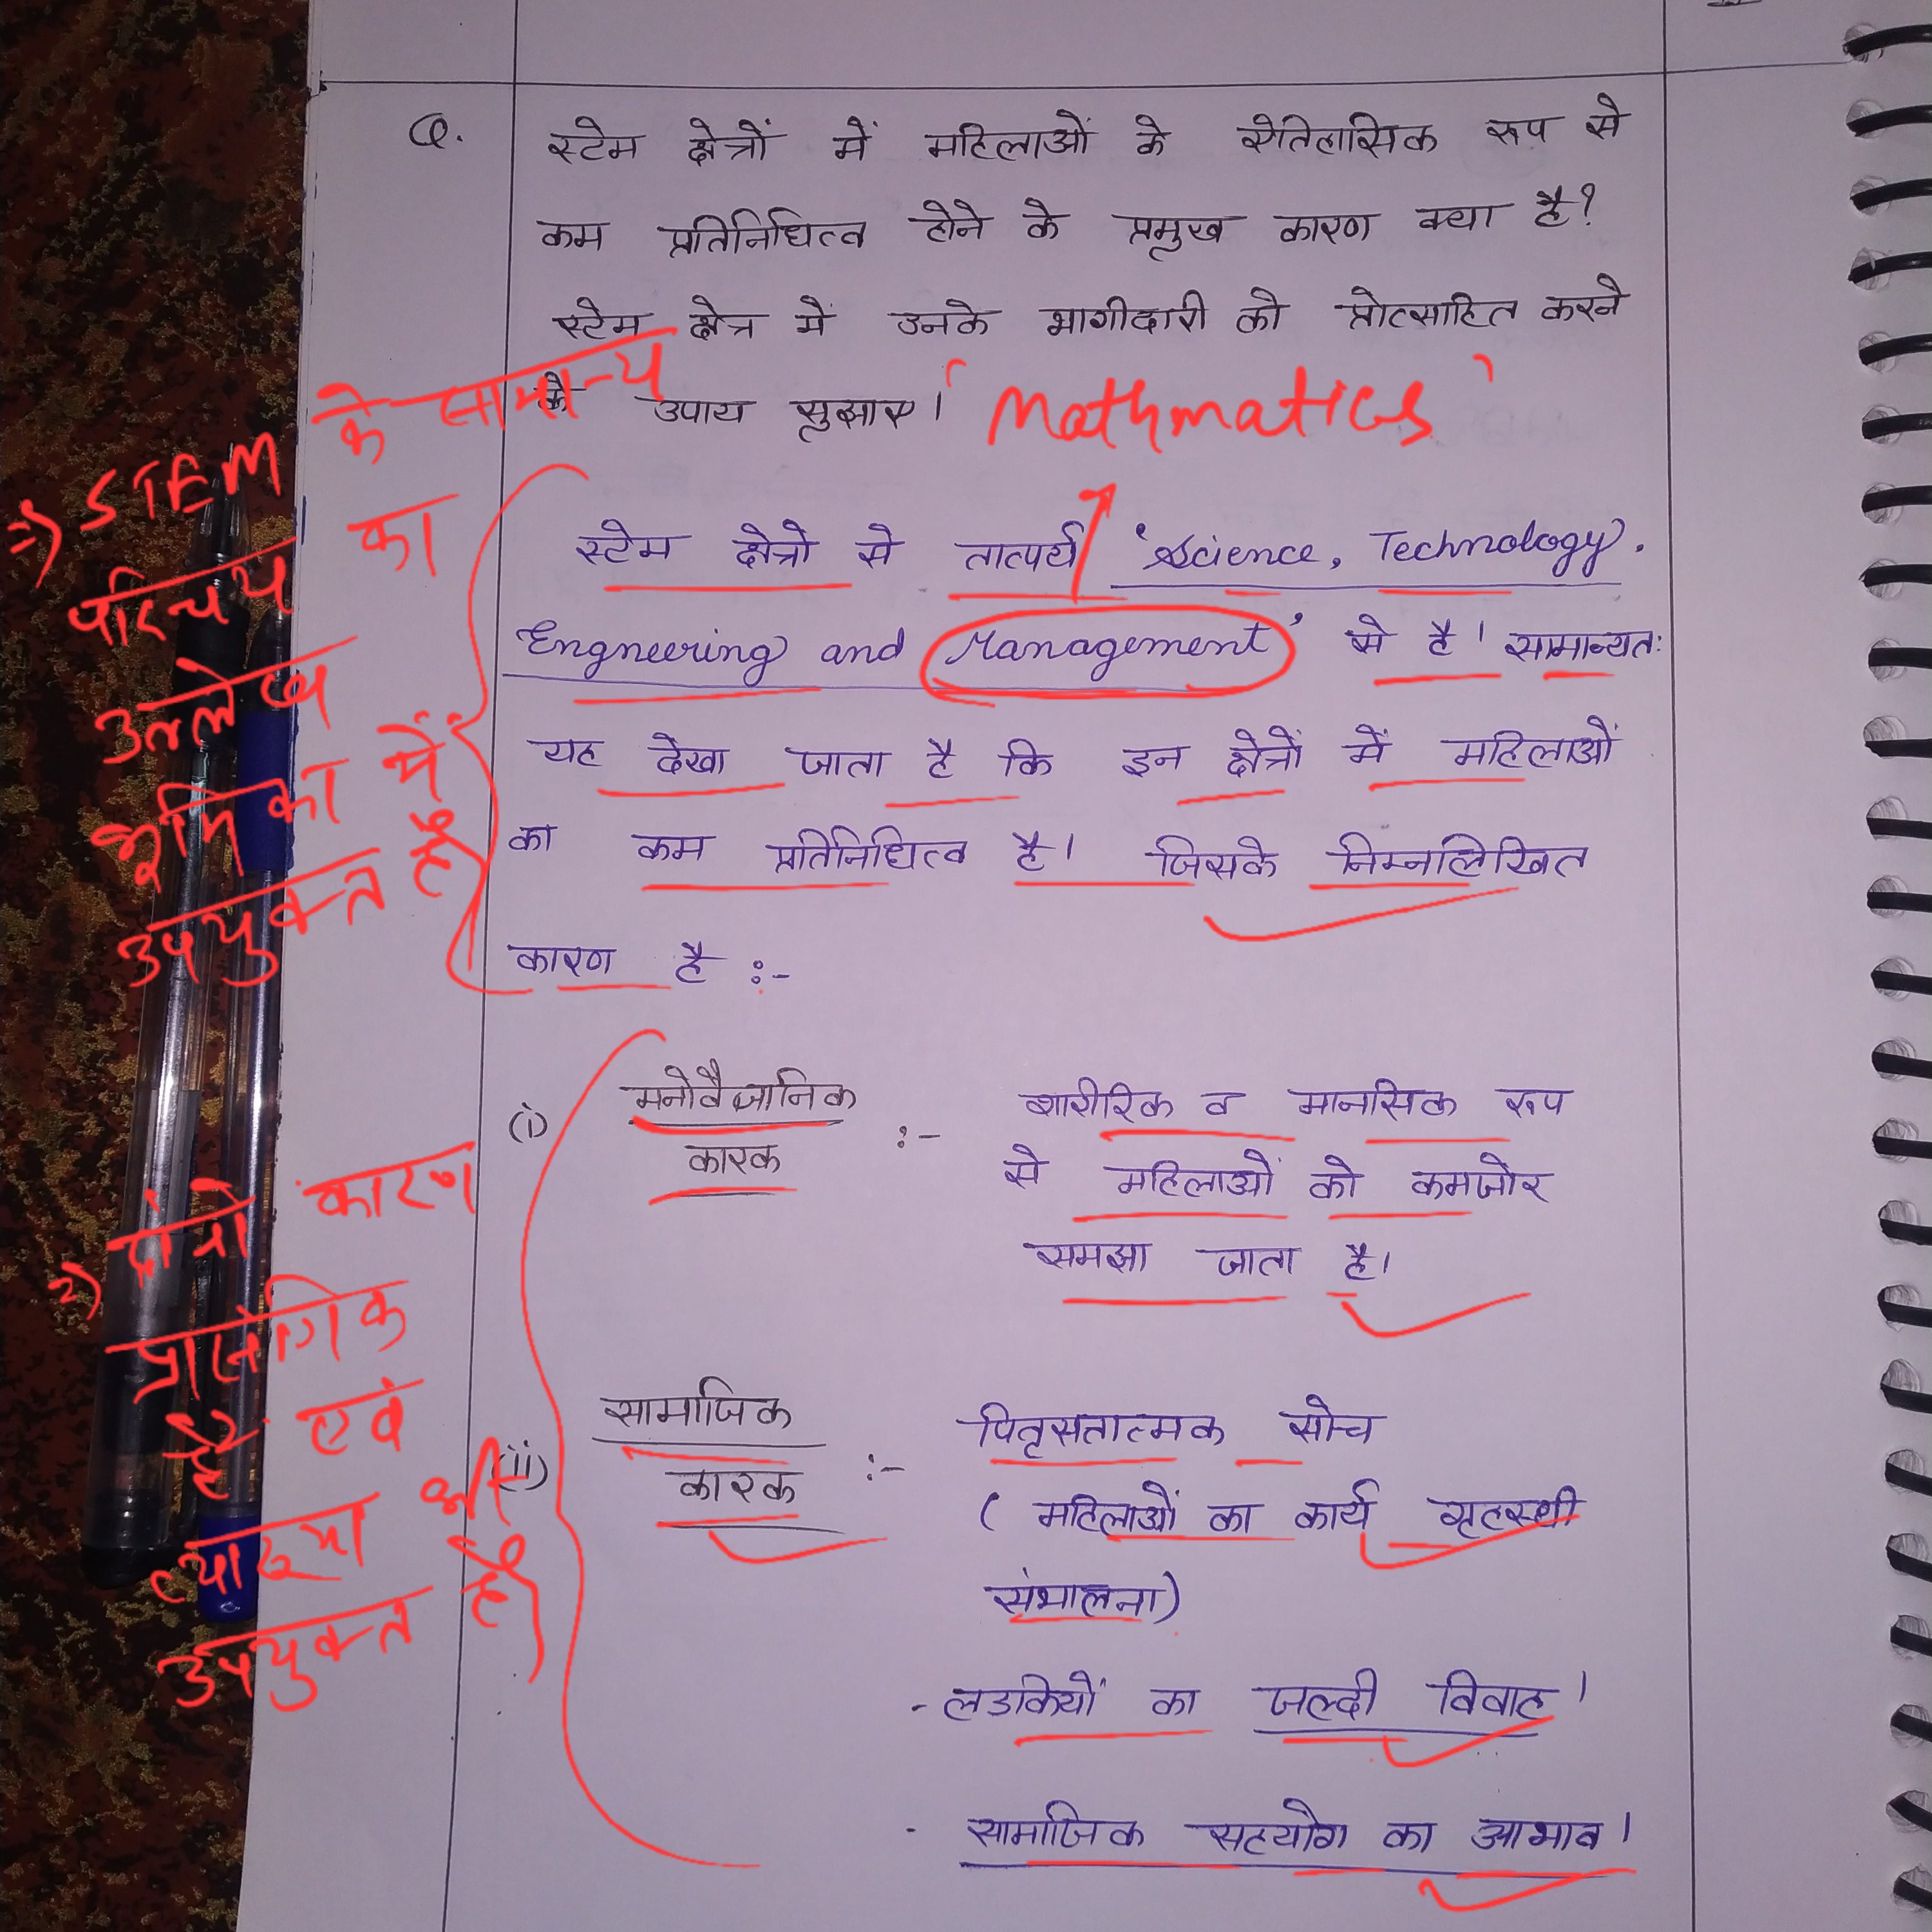 Q. स्टेम क्षेत्रों में महिलाओं के ऐतिहासिक रूप से
कम प्रतिनिधित्व होने के प्रमुख कारण क्या है?
स्टेम क्षेत्र में उनके भागीदारी को प्रोत्साहित करने
के उपाय सुझाए।
'Mathmatics'
स्टेम क्षेत्रो से तात्पर्य 'Science, Technology,
Engneering and Management' से है। सामान्यतः
यह देखा जाता है कि इन क्षेत्रों में महिलाओं
का कम प्रतिनिधित्व है। जिसके निम्नलिखित
कारण है :-
=) STEM के सामान्य
परिचय का
उल्लेख
भूमिका में
उपयुक्त है
(i) मनोवैज्ञानिक
कारक :-
शारीरिक व मानसिक रूप
से महिलाओं को कमजोर
समझा जाता है।
(ii) सामाजिक
कारक :-
पितृसतात्मक सोच
( महिलाओं का कार्य गृहस्थी
संभालना)
- लडकियों का जल्दी विवाह।
- सामाजिक सहयोग का आभाव।
2) दोनो कारण
प्रासंगिक
है एवं
व्याख्या भी
उपयुक्त है